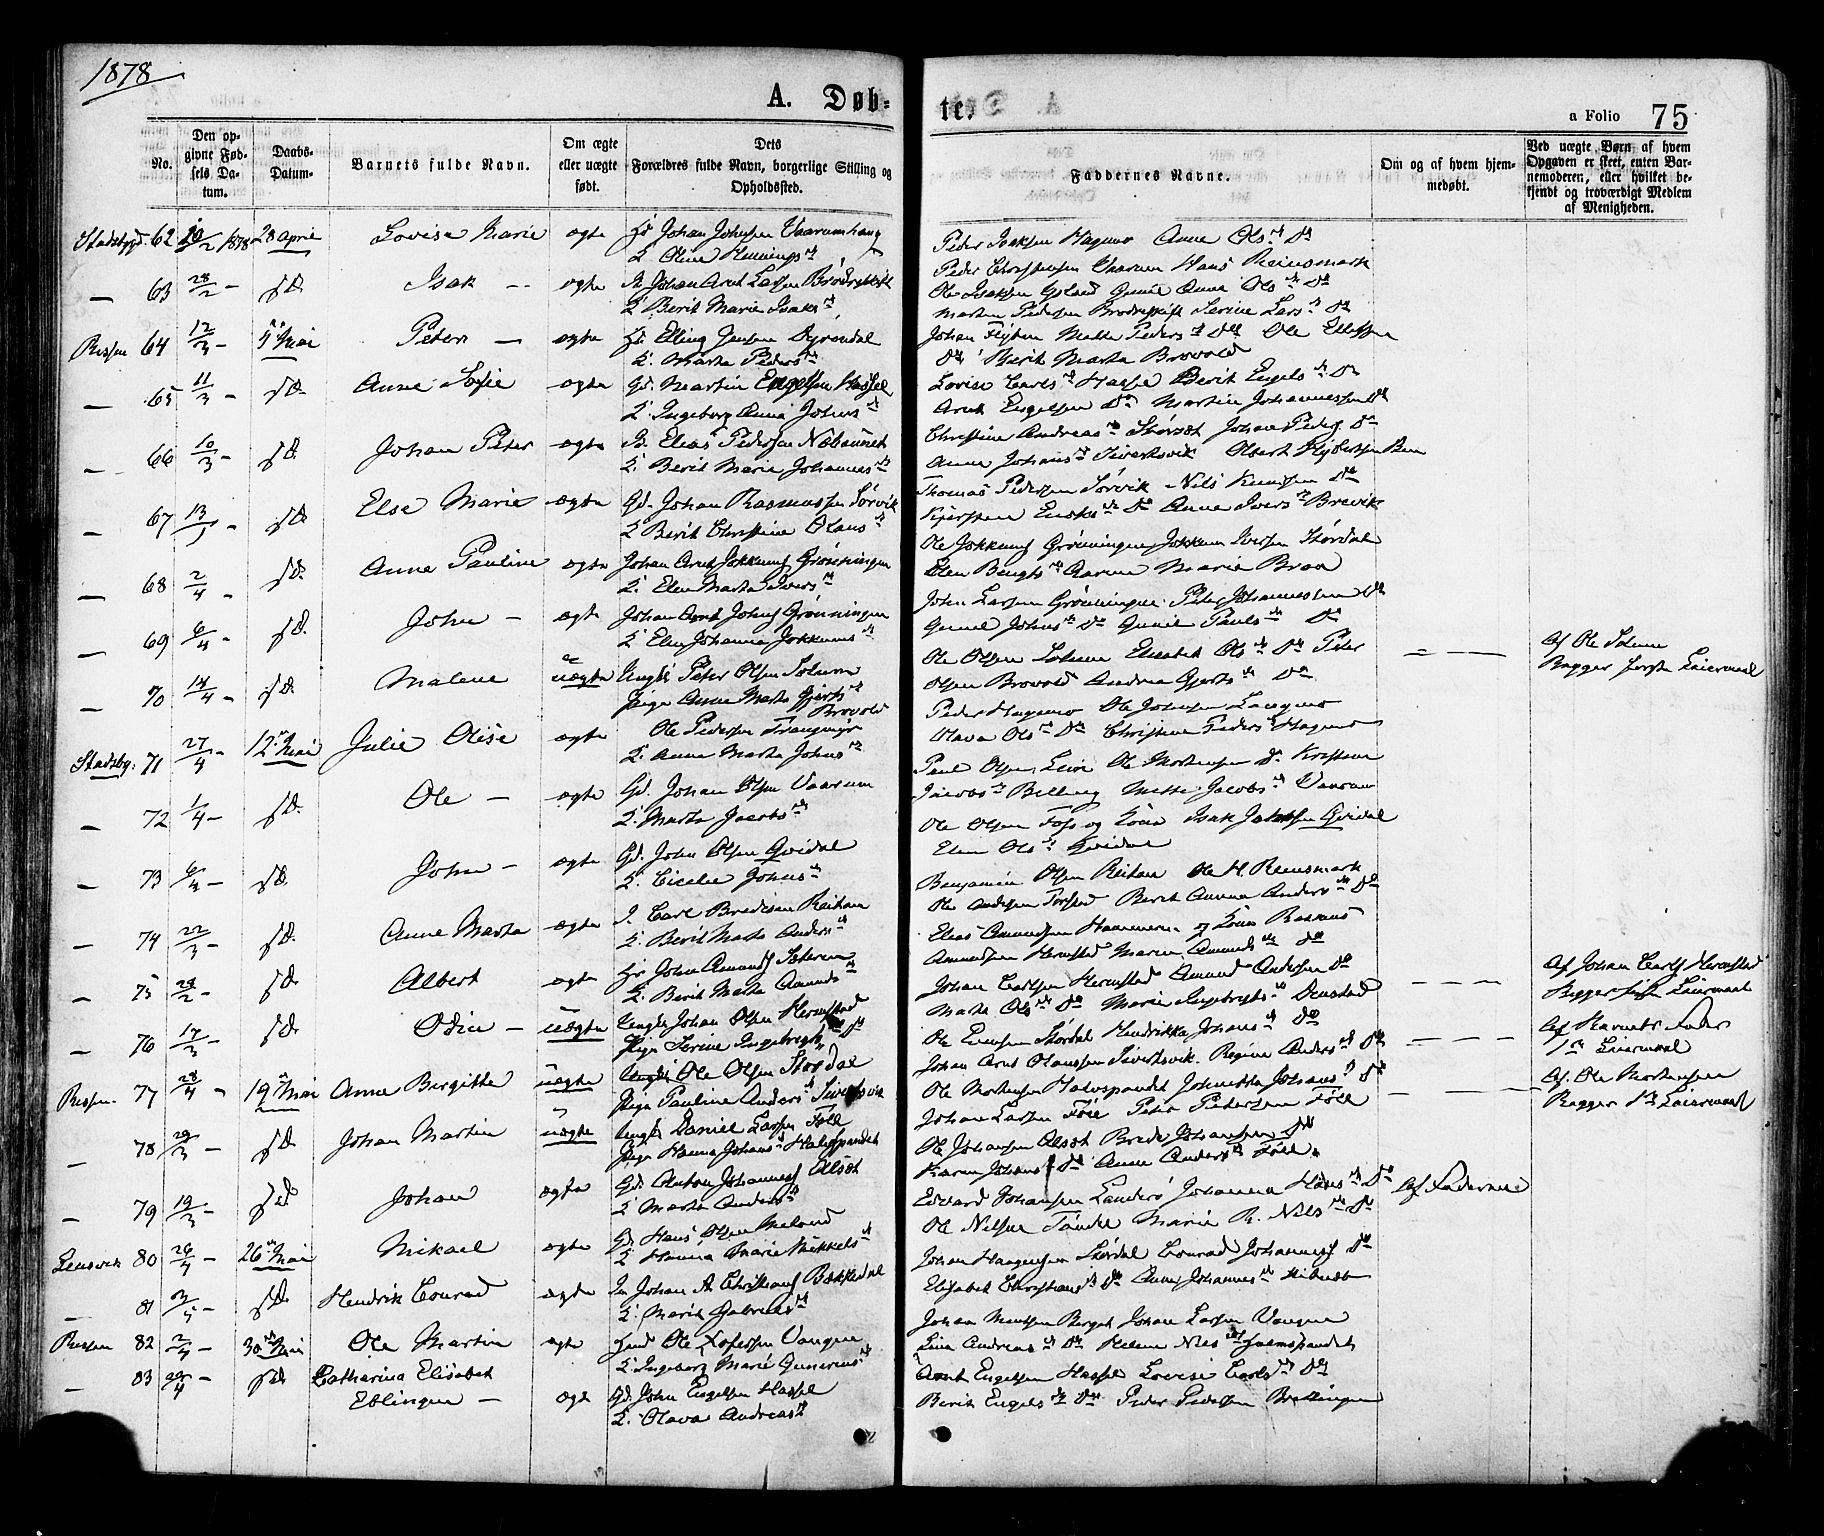 1878
A. Døb-
te.
a Folio 75
No.
Den op-
givne Fød-
sels Da-
tum.
Daabs-
Datum.
Barnets fulde Navn.
Om ægte
eller uægte
født.
Dets
Forældres fulde Navn, borgerlige Stilling og
Opholdssted.
Faddernes Navne.
Om og af hvem hjem-
medøbt.
Ved uægte Børn af hvem
Opgaven er skeet, enten Bar-
nemoderen, eller hvilket be-
kjendt og troværdigt Medlem
af Menigheden.
Stadsbygd. 62 1878 28 April Lovise Marie ægte Johan Johnsen Vaarumhaug
K. Oline Hennings
Peder Isaksen Hagmo Anne Ols Do
Peder Christensen Vaarum Hans Reinsmark
63 28/2 - Do Isak ægte Johan Arnt Larsen
K. Berit Marie Isaks
Ole Isaksen Gunild Anna Ols Do
Morten Pedersen Serine Lars Do
Rissen 64 12/3 - 5 Mai Peter ægte Elling Jensen Dyrendal
K. Marta Peders
Johan Mette Peders Do Ole Ellefsen
Do Berit Marta Brovold
65 11/3 - Do Anne Sofie ægte Gd. Martin Engelsen Hassel
K. Ingeborg Anna Johns
Lovise Carls Hassel Berit Engels Do
Arnt Engelsen Do Martin Johannessen Do
66 10/3 - Do Johan Peter ægte Elias Pedersen Næbaunet
K. Berit Marie Johannes
Christine Andreas Johan Peders Do
Anne Johans Sivertsvik Albert
67 13/ - Do Else Marie ægte Gd. Johan Rasmussen Sørvik
K. Berit Christine Olaus
Thomas Pedersen Sørvik Nils Knudsen Do
Do Anne Ivers Brevik
68 2/4 - Do Anne Pauline ægte Johan Arnt Jokkums Grønningen
K. Elen Marta Ivers
Ole Jokkums Grønningen Jokkum Iversen Størdal
Elen Bengts Marie
69 6/4 - Do John - ægte Johan Arnt Johns Grønningen
K. Elen Johanna Jokkums
John Larsen Grønningen Peter Johannessen Do
Gunnel Johns Do Gunil Pauls Do
70 14/4 - Do Malene uægte Ungk. Peter Olsen Solum
Pige Anne Marta Gjerts
Brovold
Ole Olsen Solum Elisabet Ols Do Peter
Olsen Brovold Andrea Gjerts Do
Af Ole Solum
Begges første Leiermaal
Stadsby. 71 27/4 - 12 Mai Julie Olise ægte Ole Pedersen Trangmyr
K. Anne Marta Johns
Peder Hagmo Ole Johnsen Langmo
Olava Ols Do Christine Peders Hagmo
72 1/4 - Do Ole - ægte Gd. Johan Olsen Vaarum
K. Marta Jacobs
Paul Olsen Ole Mortensen Do Kristine
Jacobs Belling Mette Jacobs Vaarum
73 6/4 - Do John - ægte Gd. John Olsen Qvidal
K. Cicelie Johns
Ole Olsen Foss og Kone Isak Johnsen Qvidal
Elen Ols Kvidal
74 22/3 - Do Anne Marta ægte I. Carl Bredesen Reitan
K. Berit Marta Anders
Benjamin Olsen Reitan Ole H. Reinsmark
Ole Andersen Berit Anna Anders Do
75 28/2 - Do Albert ægte John Amunds Sæteren
K. Berit Marta Amunds
Elias Amundsen Hammeren og Kone Rasmus
Amundsen Hermstad Maren Amunds Do
76 17/3 - Do Odin - uægte Ungk. Johan Olsen Hermstad
Pige Serine Ingebrigts Do
Johan Carlsen Hermstad Amund Andersen Do
Marta Ols Do Marie Ingebrigts Denstad
Af Johan Carls Hermstad
Begges første Leiermaal
Rissen 77 28/4 - 19 Mai Anne Birgitte uægte Ungk. Ole Olsen Størdal
Pige Pauline Anders Sivertsvik
Ole Evensen Størdal Hendrikke Johans Do
Johan Arnt Olaussen Sivertsvik Regine Anders Do
Af Barnets Fader
1ste Leiermaal
78 29/3 - Do Johan Martin uægte Ungk. Daniel Larsen Føll
Pige Hanna Johans Halvspandet
Ole Mortensen Halvspandet Johnetta Johans Do
Johan Larsen Føll Peter Petersen Føll
Af Ole Mortensen
Begges 1ste Leiermaal
79 19/3 - Do Johan ægte Gd. Anton Johannes Olsøt
K. Marta Anders
Ole Johansen Olsøt Brede Johansen Do
Karen Johans Do Anne Anders Føll.
Af Faderen
Lensvik 80 26/4 - 26 Mai Mikael ægte Gd. Hans Olsen Meland
K. Hanna Marie Mikkels
Edvard Johansen Landrø Johanna Hans Do
Ole Nilsen Marie R. Nils Do
81 3/5 - Do Hendrik Conrad ægte Johan A. Christians Bækkedal
K. Marit Gabriels
Johan Haagensen Størdal Conrad Johannes Do
Elisabet Christians Do Anne Johannes
Rissen 82 2/4 - 30 Mai Ole Martin ægte Ole Vangen
K. Ingeborg Marie Gunerius
Johan Mentsen Berget Johan Larsen Vangen
Lina Andreas Do Helene Nils
83 /4 - Do Catharina Elisabet
Eblingen - ægte Gd. John Engelsen Hassel
K. Olava Andreas
Arnt Engelsen Hassel Lovise Carls Do
Berit Engels Do Peder Pedersen Brettingen